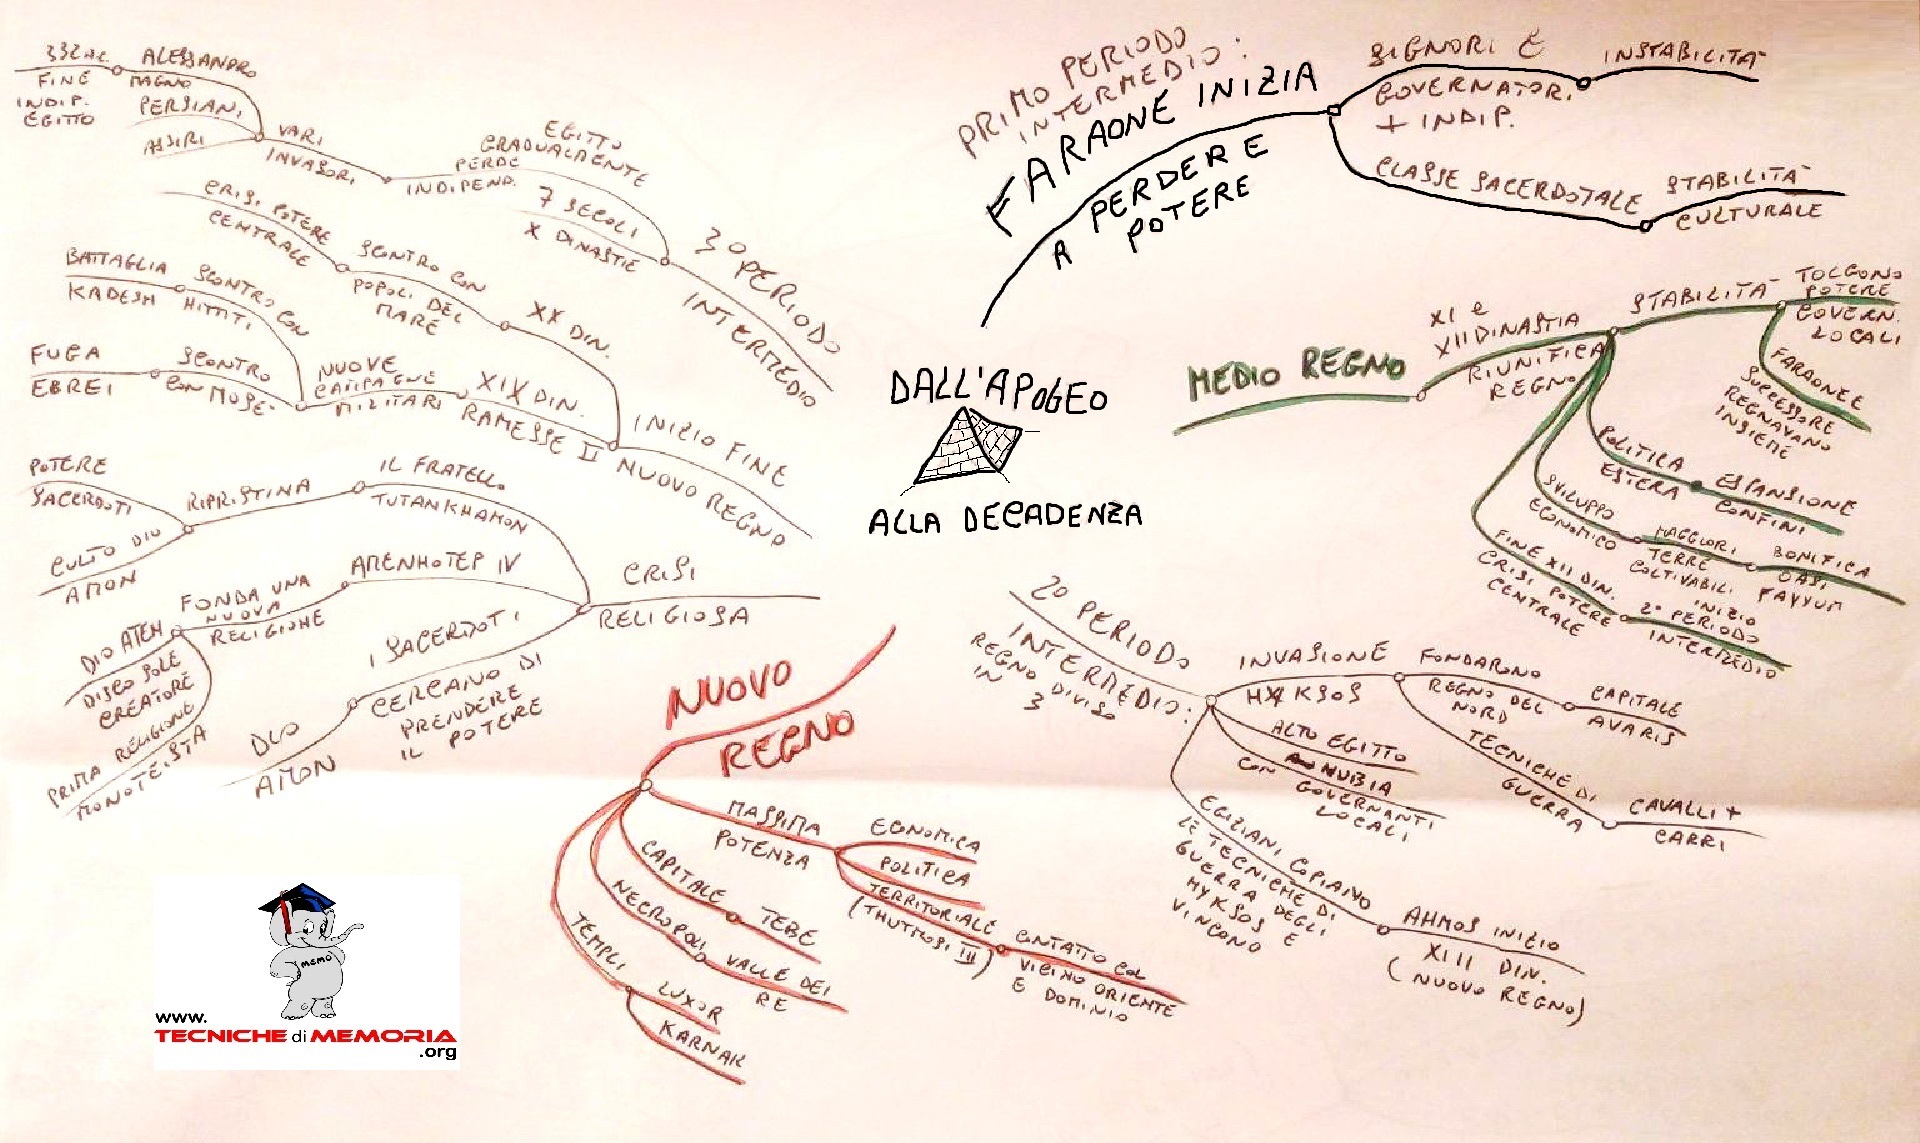 DALL'APOGEO
ALLA DECADENZA
PRIMO PERIODO
INTERMEDIO:
FARAONE INIZIA
A PERDERE
POTERE
SIGNORI E
GOVERNATORI
+ INDIP.
INSTABILITA'
CLASSE SACERDOTALE
STABILITA'
CULTURALE
MEDIO REGNO
XI e
XII DINASTIA
RIUNIFICA
REGNO
STABILITA'
TOLGONO
POTERE
GOVERN.
LOCALI
FARAONE E
SUCCESSORE
REGNAVANO
INSIEME
POLITICA
ESTERA
ESPANSIONE
CONFINI
SVILUPPO
ECONOMICO
MAGGIORI
TERRE
COLTIVABILI
BONIFICA
OASI
FAYYUM
FINE XII DIN.
CRISI POTERE
CENTRALE
INIZIO
2° PERIODO
INTERMEDIO
2° PERIODO
INTERMEDIO:
REGNO DIVISO
IN 3
INVASIONE
HYKSOS
FONDARONO
REGNO DEL
NORD
CAPITALE
AVARIS
TECNICHE DI
GUERRA
CAVALLI +
CARRI
ALTO EGITTO
NUBIA
CON GOVERNANTI
LOCALI
EGIZIANI COPIANO
LE TECNICHE DI
GUERRA DEGLI
HYKSOS E
VINCONO
AHMOS INIZIO
XIII DIN.
(NUOVO REGNO)
NUOVO
REGNO
MASSIMA
POTENZA
ECONOMICA
POLITICA
TERRITORIALE
(THUTMOSI III)
CONTATTO COL
VICINO ORIENTE
E DOMINIO
CAPITALE
TEBE
NECROPOLI
VALLE DEI
RE
TEMPLI
LUXOR
KARNAK
CRISI
RELIGIOSA
I SACERDOTI
CERCANO DI
PRENDERE
IL POTERE
DIO
AMON
AMENHOTEP IV
FONDA UNA
NUOVA
RELIGIONE
DIO ATEN
DISCO SOLE
CREATORE
PRIMA RELIGIONE
MONOTEISTA
IL FRATELLO
TUTANKHAMON
RIPRISTINA
POTERE
SACERDOTI
CULTO DIO
AMON
INIZIO FINE
NUOVO REGNO
XIX DIN.
RAMESSE II
NUOVE
CAMPAGNE
MILITARI
SCONTRO
CON MOSE'
FUGA
EBREI
SCONTRO CON
HITTITI
BATTAGLIA
KADESH
XX DIN.
SCONTRO CON
POPOLI DEL
MARE
CRISI POTERE
CENTRALE
3° PERIODO
INTERMEDIO
7 SECOLI
X DINASTIE
EGITTO
GRADUALMENTE
PERDE
INDIPEND.
VARI
INVASORI
ASSIRI
PERSIANI
ALESSANDRO
MAGNO
332 AC.
FINE
INDIP.
EGITTO
MEMO
www.
TECNICHE di MEMORIA
.org